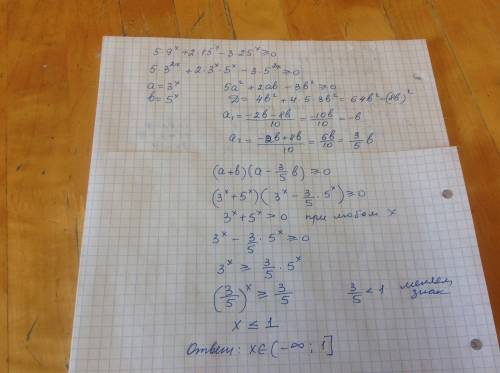 5·9ˣ+2·15ˣ-3·25ˣ≥0
5·3²ˣ+2·3ˣ·5ˣ-3·5²ˣ≥0
a=3ˣ 5a²+2ab-3b²≥0
b=5ˣ D=4b²+4·5·3b²=64b²=(8b)²
a₁=(-2b-8b)/10=-10b/10=-b
a₂=(-2b+8b)/10=6b/10=3/5 b
(a+b)(a-3/5 b)≥0
(3ˣ+5ˣ)(3ˣ-3/5·5ˣ)≥0
3ˣ+5ˣ>0 при любом x
3ˣ-3/5·5ˣ≥0
3ˣ≥3/5·5ˣ
(3/5)ˣ≥3/5 3/5<1 меняем знак
x≤1
Ответ: x∈(-∞;1]